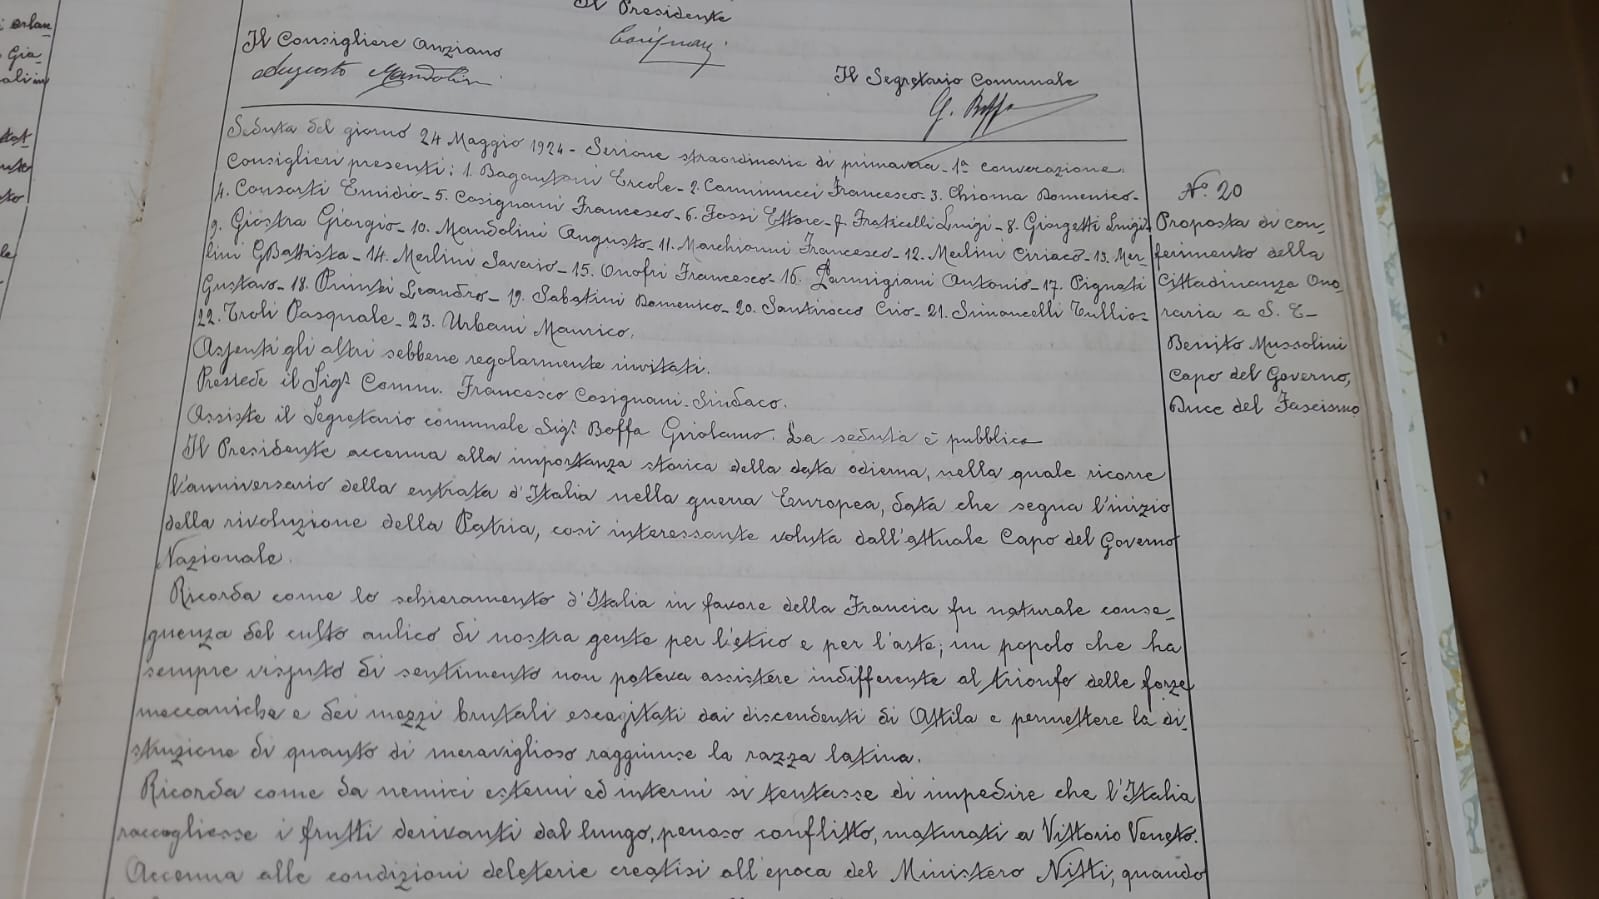 Il Presidente
Il Consigliere Anziano
Augusto Mandolini
Il Segretario Comunale
G. Boffa
Seduta del giorno 24 Maggio 1924 - Sessione straordinaria di primavera - 1ª convocazione.
Consiglieri presenti: 1. Bagantoni Ercole - 2. Caminucci Francesco - 3. Chioma Domenico -
4. Consorti Emidio - 5. Cosignani Francesco - 6. Fossi Ettore - 7. Fraticelli Luigi - 8. Giorgetti Luigi
9. Giostra Giorgio - 10. Mandolini Augusto - 11. Marchionni Francesco - 12. Merlini Ciriaco - 13. Mer-
lini GBattista - 14. Merlini Saverio - 15. Onofri Francesco - 16. Parmigiani Antonio - 17. Pignati
Gustavo - 18. Leandro - 19. Sabatini Domenico - 20. Santirocco - 21. Simoncelli Tullio -
22. Troli Pasquale - 23. Urbani Maurico.
Assenti gli altri sebbene regolarmente invitati.
Presiede il Sigr Comm. Francesco Cosignani - Sindaco.
Assiste il Segretario comunale Sigr Boffa Girolamo. La seduta è pubblica
Il Presidente accenna alla importanza storica della data odierna, nella quale ricorre
l'anniversario della entrata d'Italia nella guerra Europea, data che segna l'inizio
della rivoluzione della Patria, così interessante voluta dall'attuale Capo del Governo
Nazionale.
Ricorda come lo schieramento d'Italia in favore della Francia fu naturale conse-
guenza del culto aulico di nostra gente per l'etico e per l'arte; un popolo che ha
sempre vissuto di sentimento non poteva assistere indifferente al trionfo delle forze
meccaniche e dei mezzi brutali escogitati dai discendenti di Attila e permettere la di-
struzione di quanto di meraviglioso raggiunse la razza latina.
Ricorda come da nemici esterni ed interni si tentasse di impedire che l'Italia
raccogliesse i frutti derivanti dal lungo, penoso conflitto, maturati a Vittorio Veneto.
Accenna alle condizioni deleterie creatisi all'epoca del Ministero Nitti, quando
N° 20
Proposta di con-
ferimento della
Cittadinanza Ono-
raria a S. E-
Benito Mussolini
Capo del Governo,
Duce del Fascismo